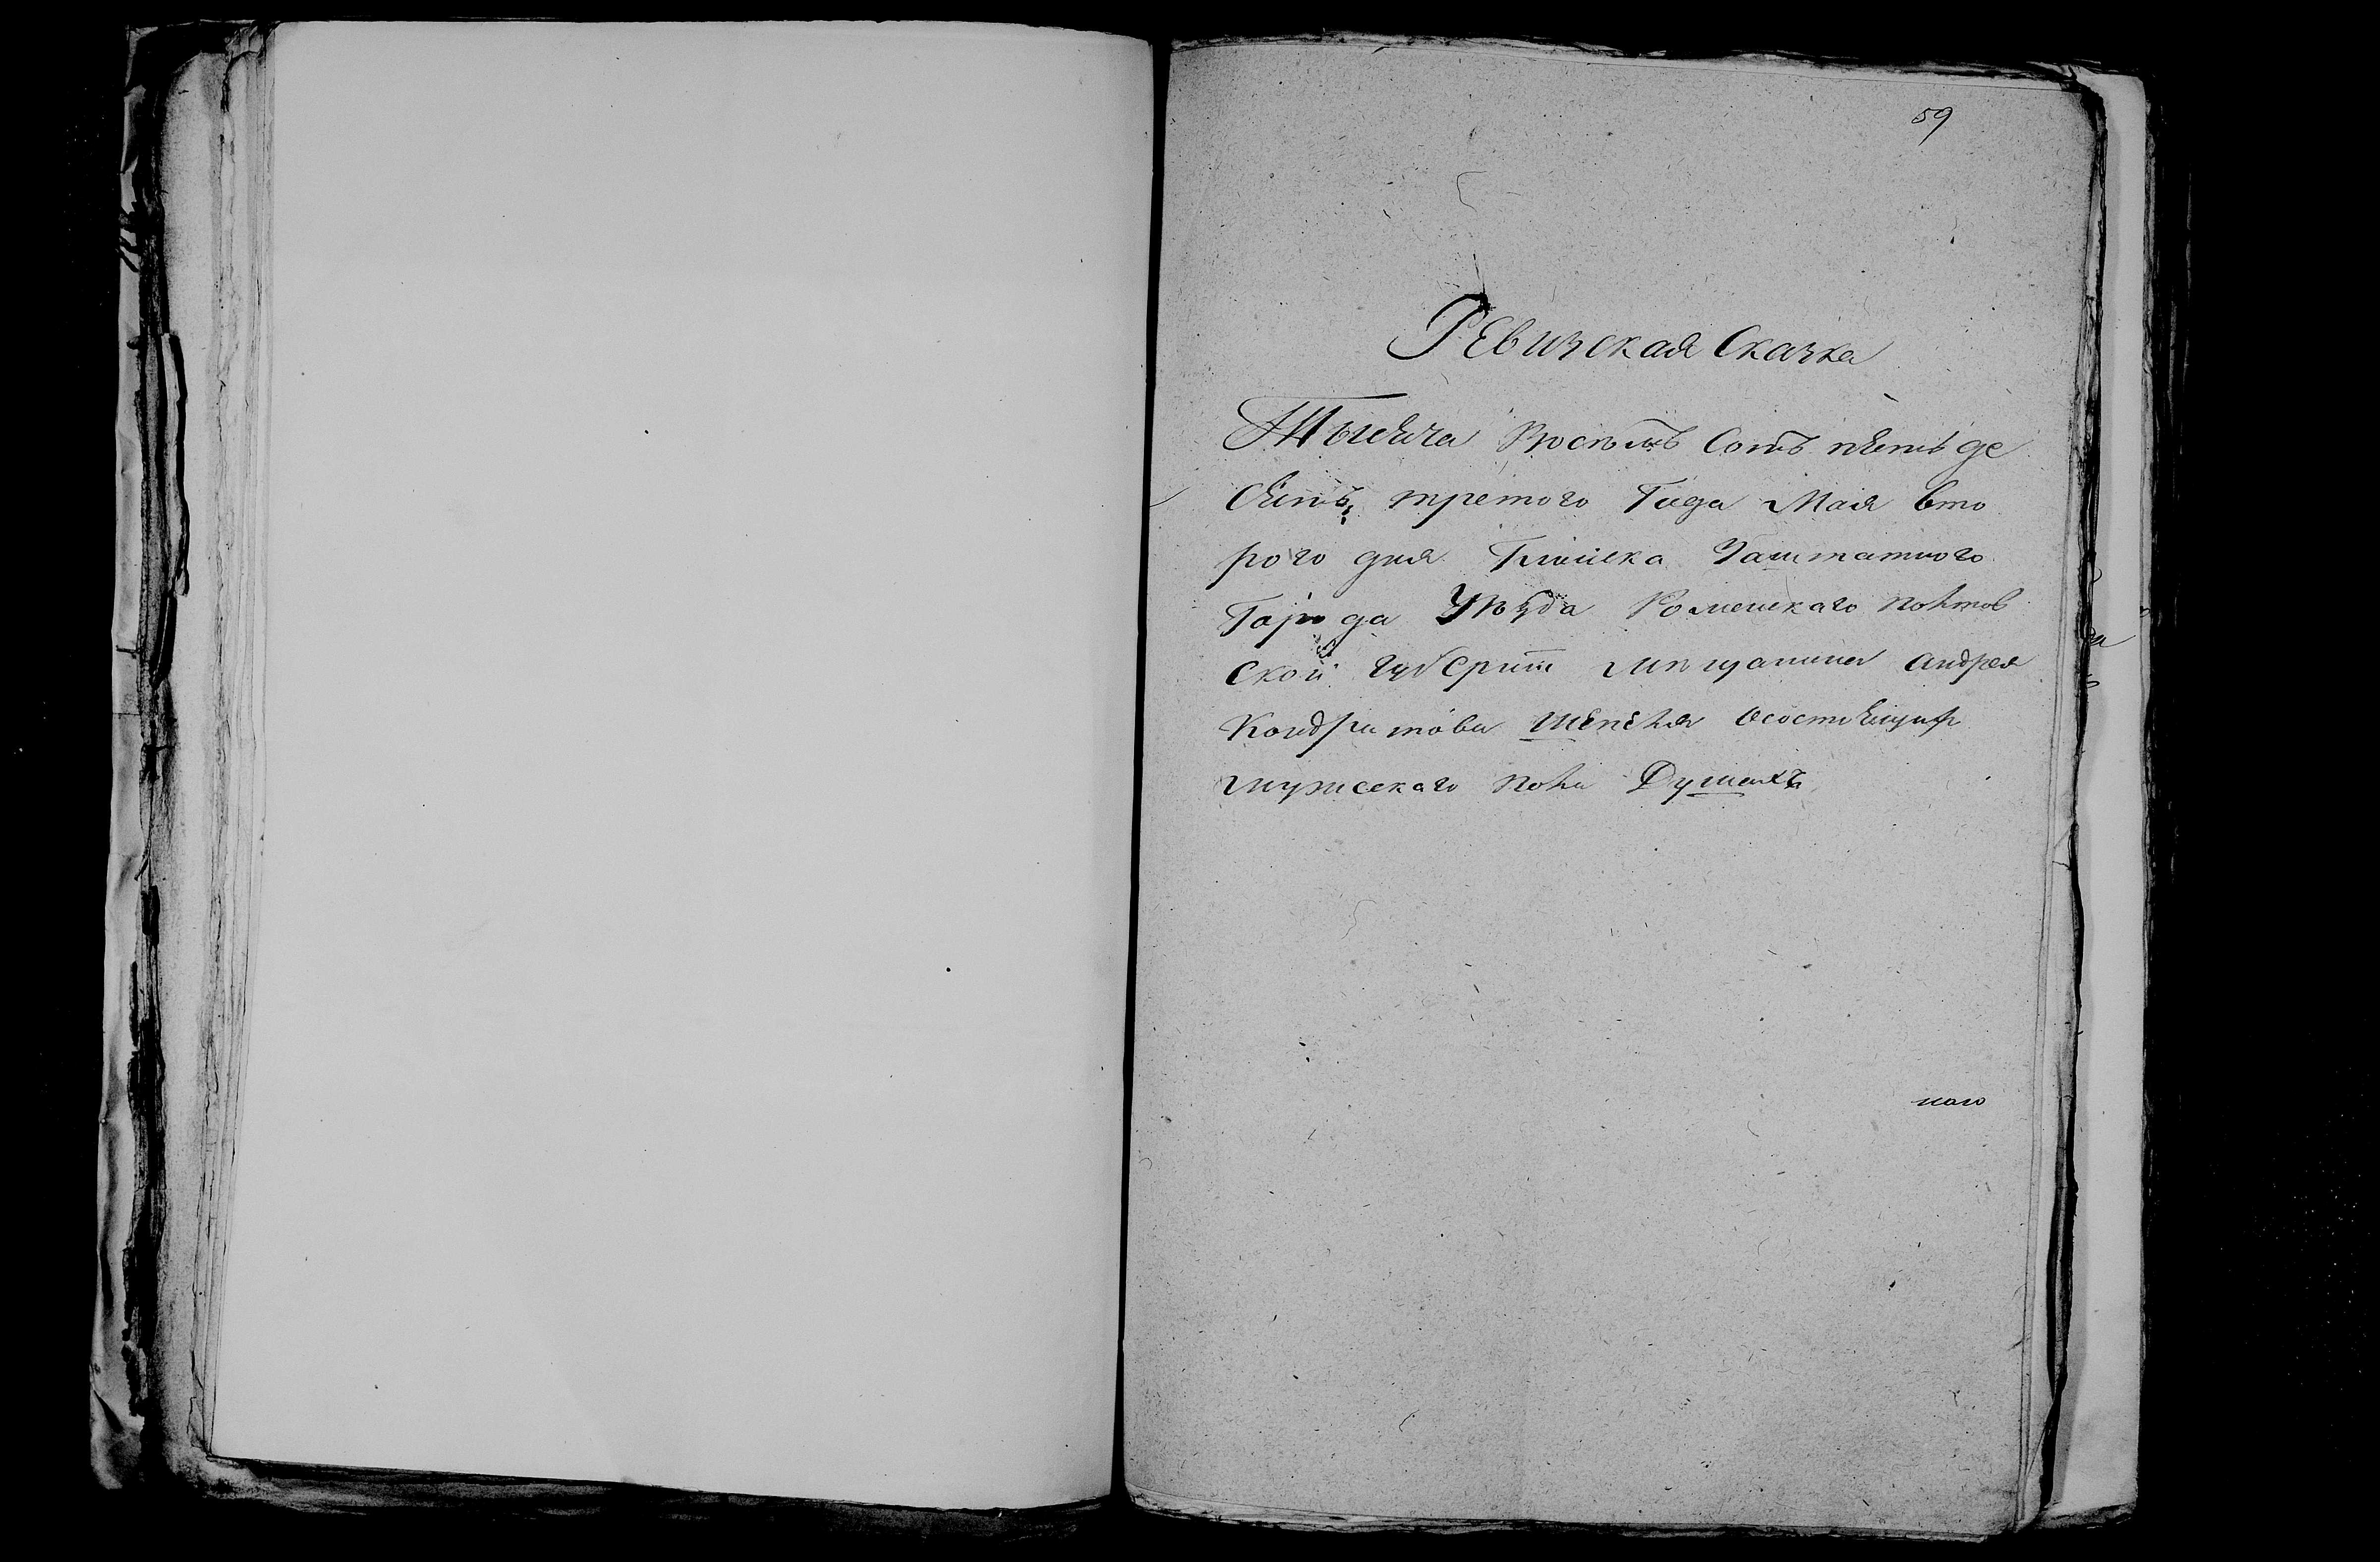 59
Ревизская Сказка
Тысяча Восѣмъ Сотъ пять де
сять третого Года Мая вто
рого дня Глинска Заштатного
Города Уѣзда Роменскаго полтов
ской губернии мѣщанина андрея
Кондратова состоящих
мужескаго пола Душахъ